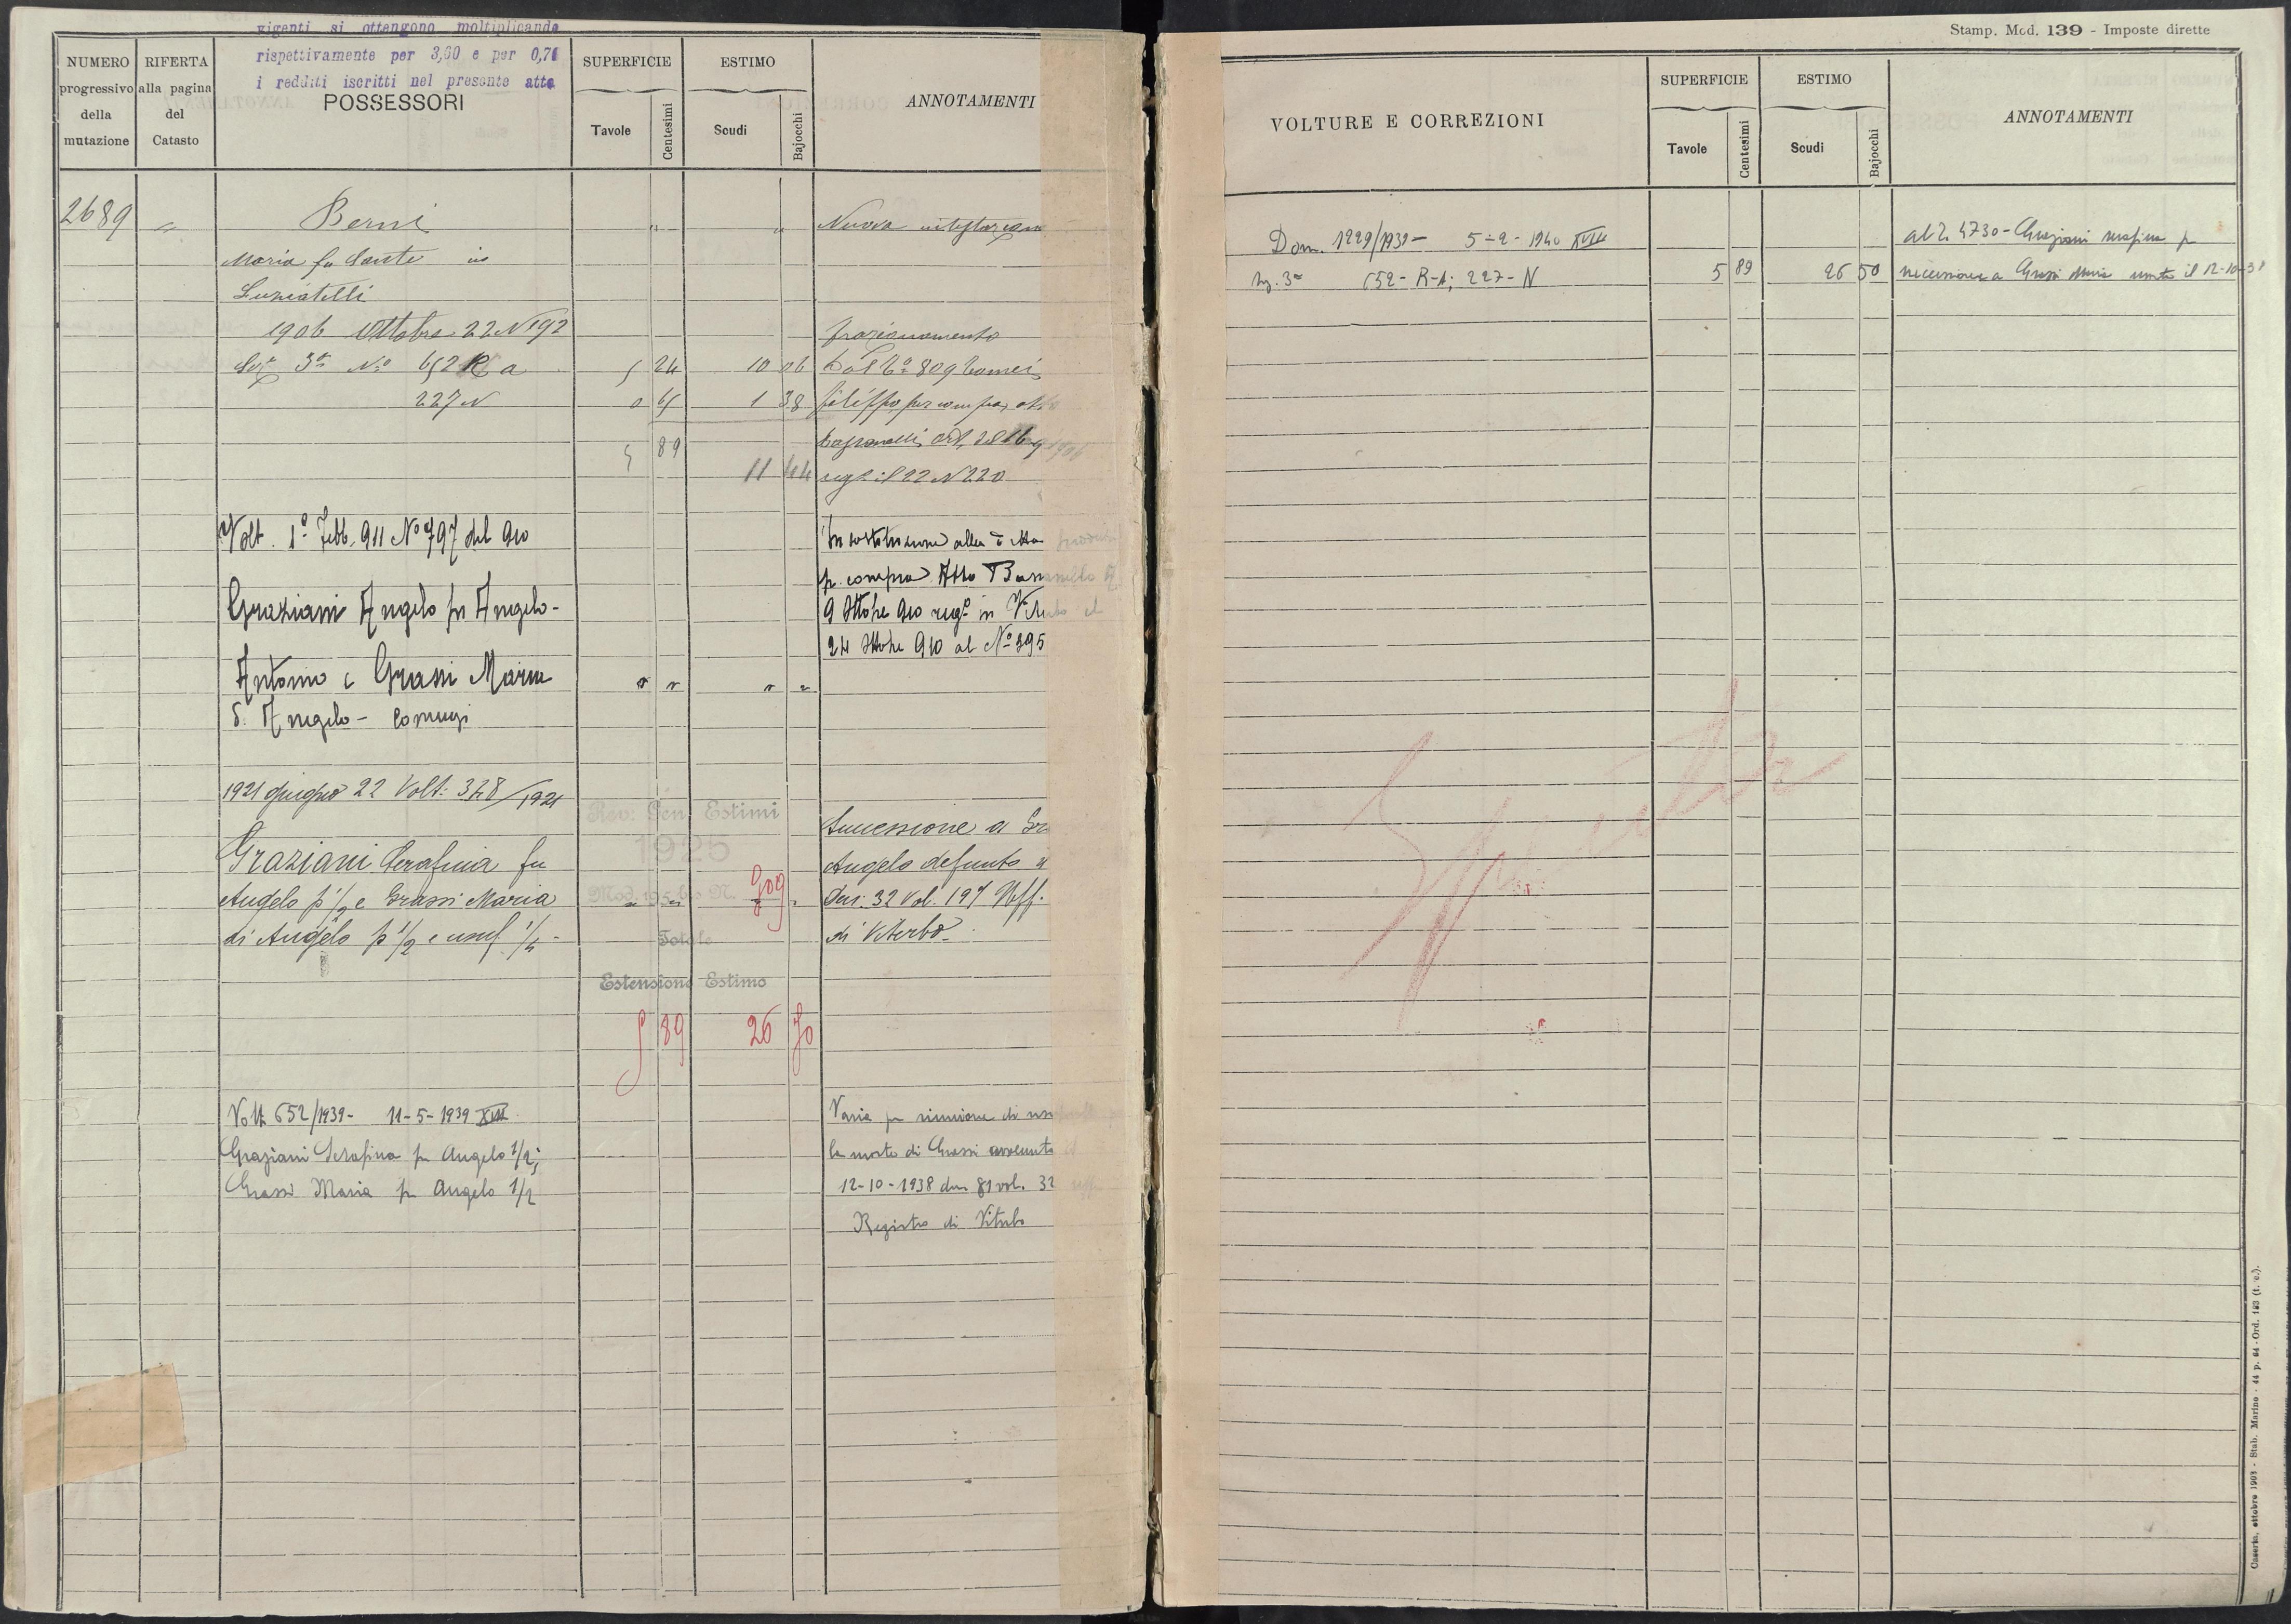 vigenti si ottengono moltiplicando
rispettivamente per 3,60 e per 0,71
i redditi iscritti nel presente atto
NUMERO progressivo della mutazione
RIFERTA alla pagina del Catasto
POSSESSORI
SUPERFICIE
Tavole
Centesimi
ESTIMO
Scudi
Bajocchi
ANNOTAMENTI
2689 " Berni " " Nuova intestazion
Maria fu Sante in
Lunciatelli
1906 Ottobre 22 N 192 frazionamento
Sez. 3ª Nº 652 R a 5 24 10 06 Dal Cº 809
227 N 0 65 1 38 filippo, per
5 89 
11 44 regº il 22 N 220
Volt. 1º Febb. 911 Nº 797 del 910
Graziani Angelo fu Angelo-
Antonio e Grassi Maria " " " "
d. Angelo - coniugi
In sostituzione alla
p. compra Atto
9 Ottobre 910 regº in Viterbo il
24 Ottobre 910 al Nº 395
1921 giugno 22 Volt: 328/1921
Graziani Serafina fu
Angelo p 1/2 e Grassi Maria
di Angelo p 1/2 e usuf. 1/4 -
Rev: Gen Estimi
1925
Mod. N. 909
Totale
Estensione Estimo
5 89 26 50
Successione a Gr
Angelo defunto
Den: 32 Vol. 197 Uff.
di Viterbo.
Volt 652/1939- 11-5-1939 XVII
Graziani Serafina fu Angelo 1/2;
Grassi Maria fu Angelo 1/2
Varia per riunione di usu
la morte di Grassi avvenuta il
12-10-1938 den. 81 vol. 32
Registro di Viterbo
Stamp. Mod. 139 - Imposte dirette
VOLTURE E CORREZIONI
SUPERFICIE
Tavole
Centesimi
ESTIMO
Scudi
Bajocchi
ANNOTAMENTI
Dom. 1229/1939- 5-2-1940 XVIII al 4730 - Graziani Serafina p
Sez. 3ª 652-R-A; 227-N 5 89 26 50 successione a Grassi Maria morta il 12-10-38
Caserta, ottobre 1903 - Stab. Marino - 44 p. 64 - Ord. 193 (t. e.).